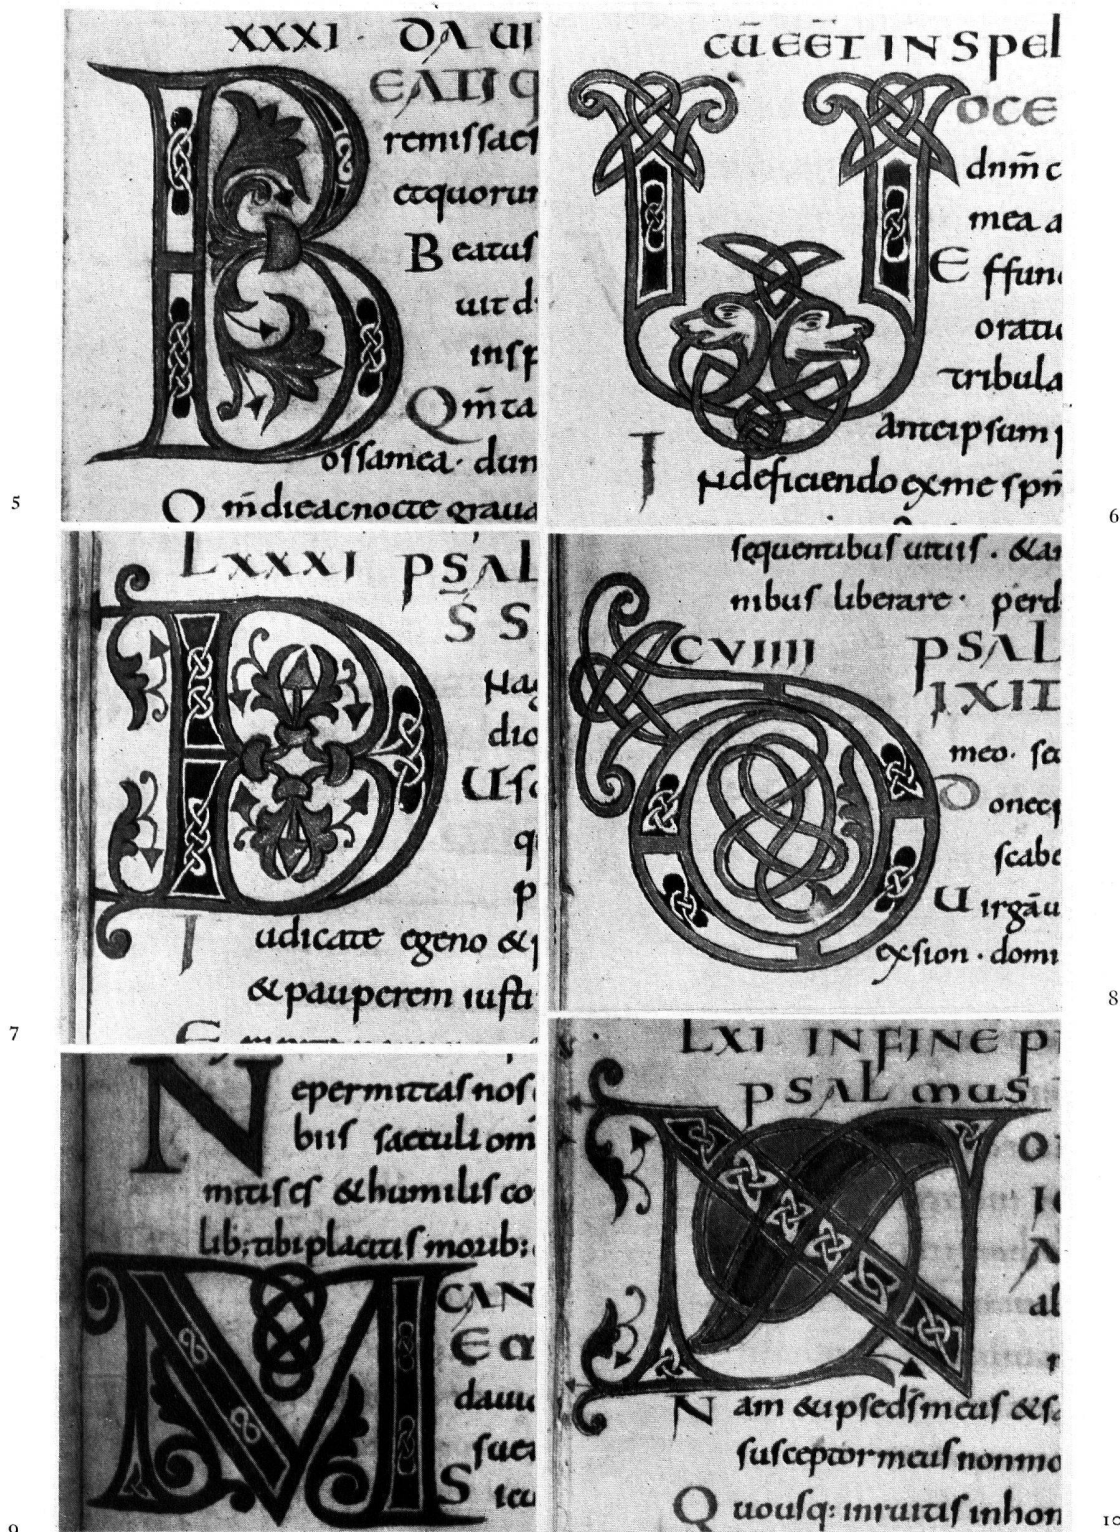 XXXI · DA UI
B
EATI Q
remissaes
etquorur
Beatus
uit d
insp
Qm̄ta
ossamea · dun
Om̄dieacnocte graua
5
CŪEEĒT IN SPEL
U
OCE
dnm̄ c
mea a
Effun
oratio
tribula
Anteipsum
INdeficiendo exme spm̄
6
LXXXI PSAL
D
S̄ S
Nag
dio
Usq
q
p
Iudicate egeno &
& pauperem iusti
7
sequentibus uitiis · & a
nibus liberare · perd
CVIIII PSAL
D
IXIT
meo · sed
Donecp
scabe
Uirgāu
exsion · domi
8
Nepermittas nos
biis saeculi om
mitis es & humilis co
lib: tibi placitis morib:
M
CAN
EA
dauid
suea
S
9
LXI IN FINE P
PSALMUS
N
O
al
Nam &ipsed̄smeus &sa
susceptormeus nonmo
Quousq: inruitis inhom